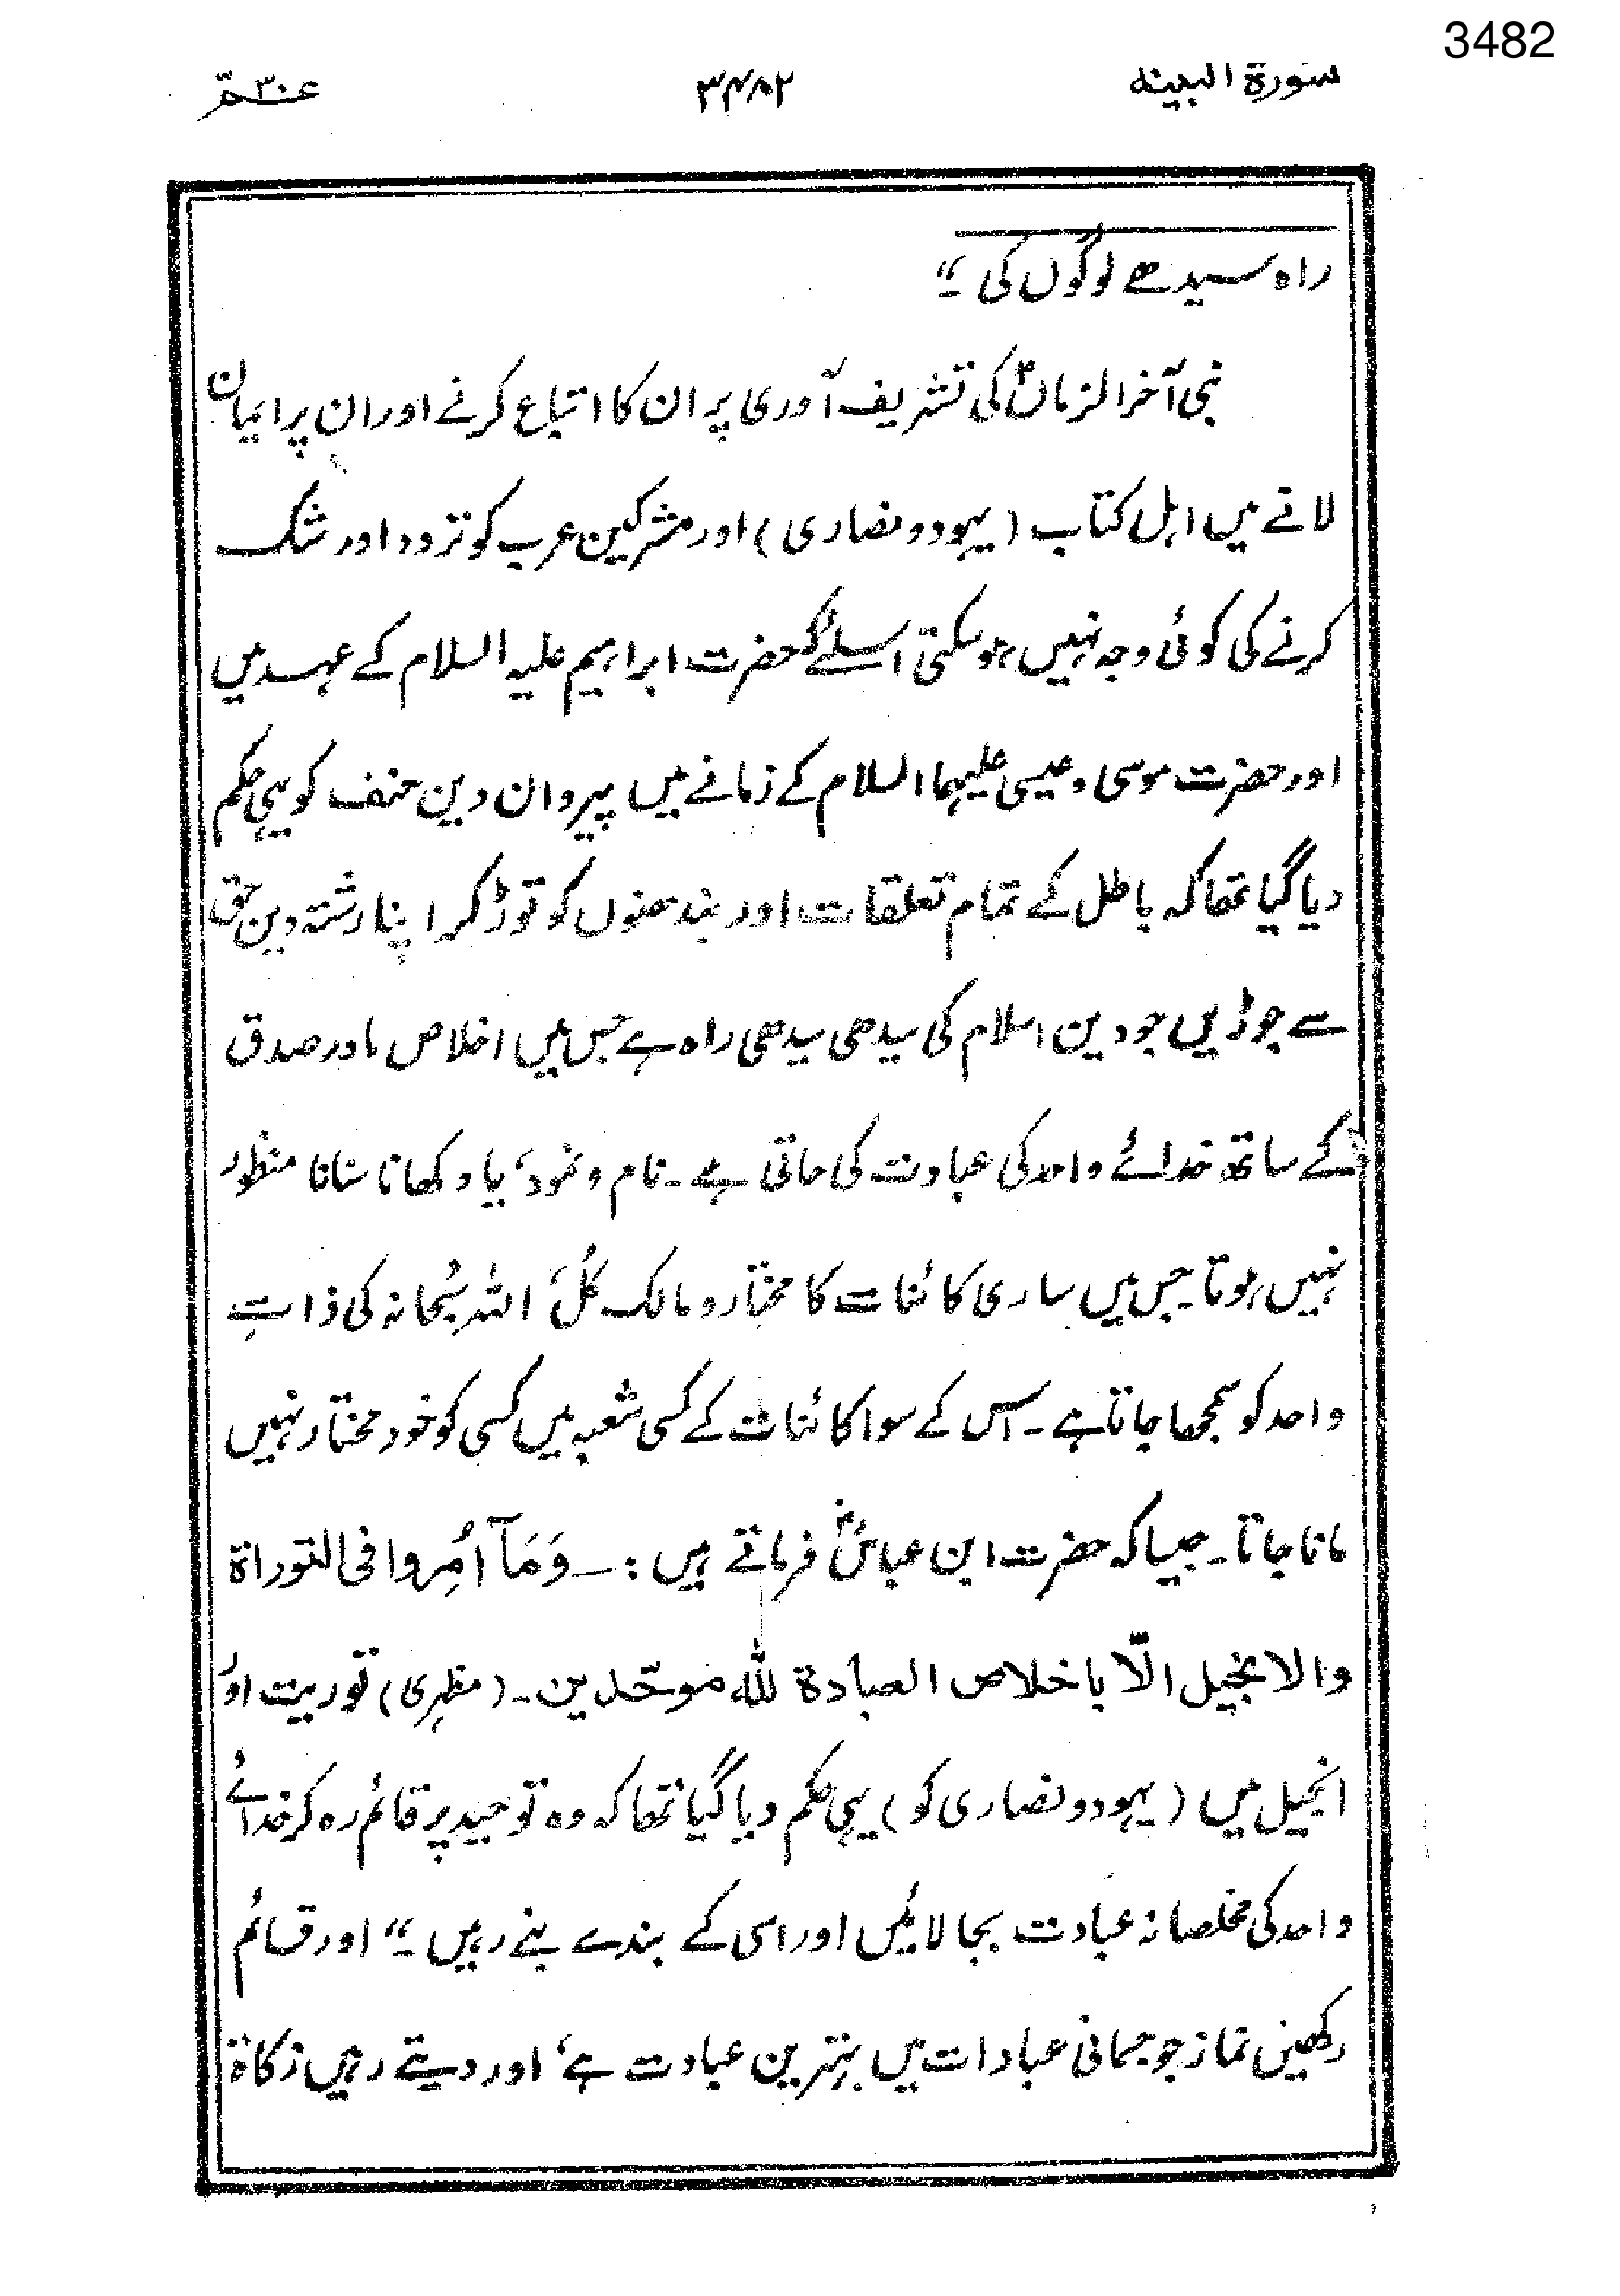 3482
سورة البينه ۳۴۸۲ عـــۃ۳۰
راہ سیدھے لوگوں کی ۔“
نبی آخر الزماںؐ کی تشریف آوری پر ان کا اتباع کرنے اور ان پر ایمان
لانے میں اہل کتاب (یہود و نصاری) اور مشرکین عرب کو تردد اور شک
کرنے کی کوئی وجہ نہیں ہو سکتی اسلئے کہ حضرت ابراہیم علیہ السلام کے عہد میں
اور حضرت موسی و عیسی علیہما السلام کے زمانے میں پیروان دین حنف کو یہی حکم
دیا گیا تھا کہ باطل کے تمام تعلقات اور بندھنوں کو توڑ کر اپنا رشتہ دین حق
سے جوڑیں جو دین اسلام کی سیدھی سیدھی راہ ہے جس میں اخلاص اور صدق
کے ساتھ خدائے واحد کی عبادت کی جاتی ہے ۔ نام و نمود، یا دکھانا سنانا منظور
نہیں ہوتا ۔ جس میں ساری کائنات کا مختار و مالک کُل، اللہ سُبحانہ کی ذاتِ
واحد کو سمجھا جاتا ہے ۔ اس کے سوا کائنات کے کسی شعبہ میں کسی کو خود مختار نہیں
مانا جاتا ۔ جیسا کہ حضرت ابن عباسؓ فرماتے ہیں :۔ وَمَآ اُمِروا فی التوراة
والانجيل الّا باخلاص العبادة لله موحّدين ۔ (مظہری) توریت اور
انجیل میں (یہود و نصاری کو) یہی حکم دیا گیا تھا کہ وہ توحید پر قائم رہ کر خدائے
واحد کی مخلصانہ عبادت بجا لائیں اور اسی کے بندے بنے رہیں ۔“ اور قائم
رکھیں نماز جو جسمانی عبادات میں بہترین عبادت ہے، اور دیتے رہیں زکاة